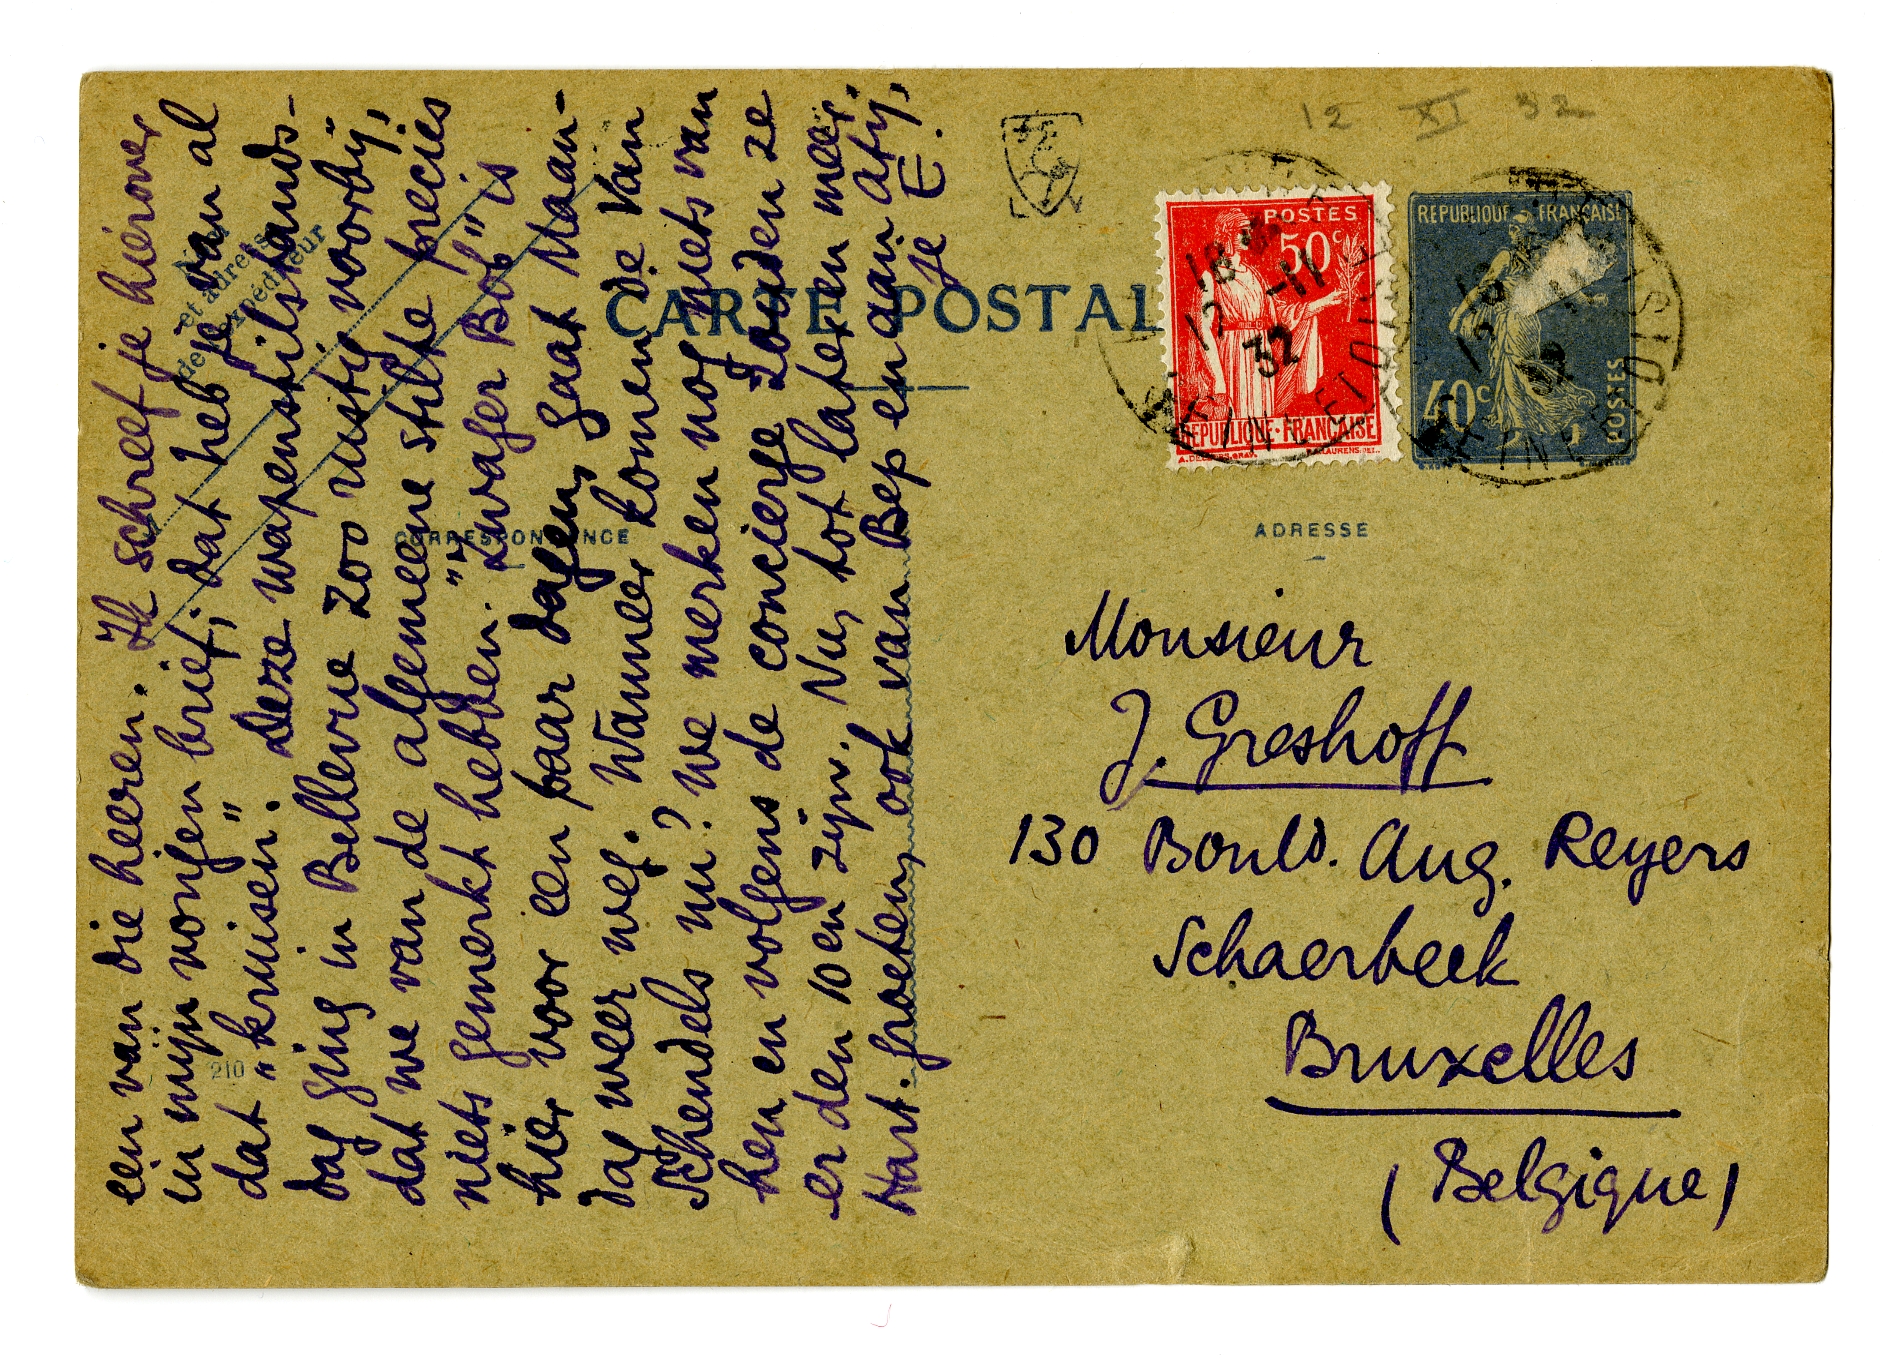 een van die heeren. Ik schreef je hierover
in mijn vorigen brief; dat heb je van al
dat "kruisen." Deze wapenstilstands-
dag ging in Bellevue zoo rustig voorbij,
dat we van de algemeene stilte precies
niets gemerkt hebben. "Zwager Bob" is
hier voor een paar dagen, gaat Maan-
dag weer weg. Wanneer komen de Van
Schendels nu? We merken nog niets van
hen en volgens de concierge zouden ze
er den 10en zijn. Nu, tot later en meer.
Hart. groeten, ook van Bep en aan Atij,
je E.
et adresse
de l'expéditeur
CARTE POSTALE
CORRESPONDANCE
210
12 XI 32
POSTES
50c
REPUBLIQUE·FRANÇAISE
REPUBLIQUE FRANÇAISE
40c
POSTES
18
12 -11
32
ADRESSE
Monsieur
J. Greshoff
130 Bould. Aug. Reyers
Schaerbeek
Bruxelles
(Belgique)